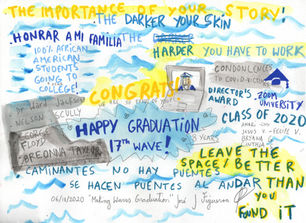 THE IMPORTANCE OF YOUR STORY!
THE DARKER YOUR SKIN
HONRAR A MI FAMILIA
THE HARDER YOU HAVE TO WORK
100% AFRICAN
AMERICAN
STUDENTS
GOING TO
COLLEGE!
CONDOLENCES
TO COVID-19
DIRECTOR'S
AWARD
ZOOM
UNIVERSITY
CONGRATS!
CLASS OF 2020
NELSON
SCULLY
GEORGE
FLOYD
BREONNA TAYLOR
HAPPY GRADUATION
17th WAVE!
YEARS
LEAVE THE
SPACE BETTER
THAN
YOU
FOUND IT
CAMINANTES NO HAY PUENTES
SE HACEN PUENTES AL ANDAR
06/18/2020 "Making Waves Graduation"